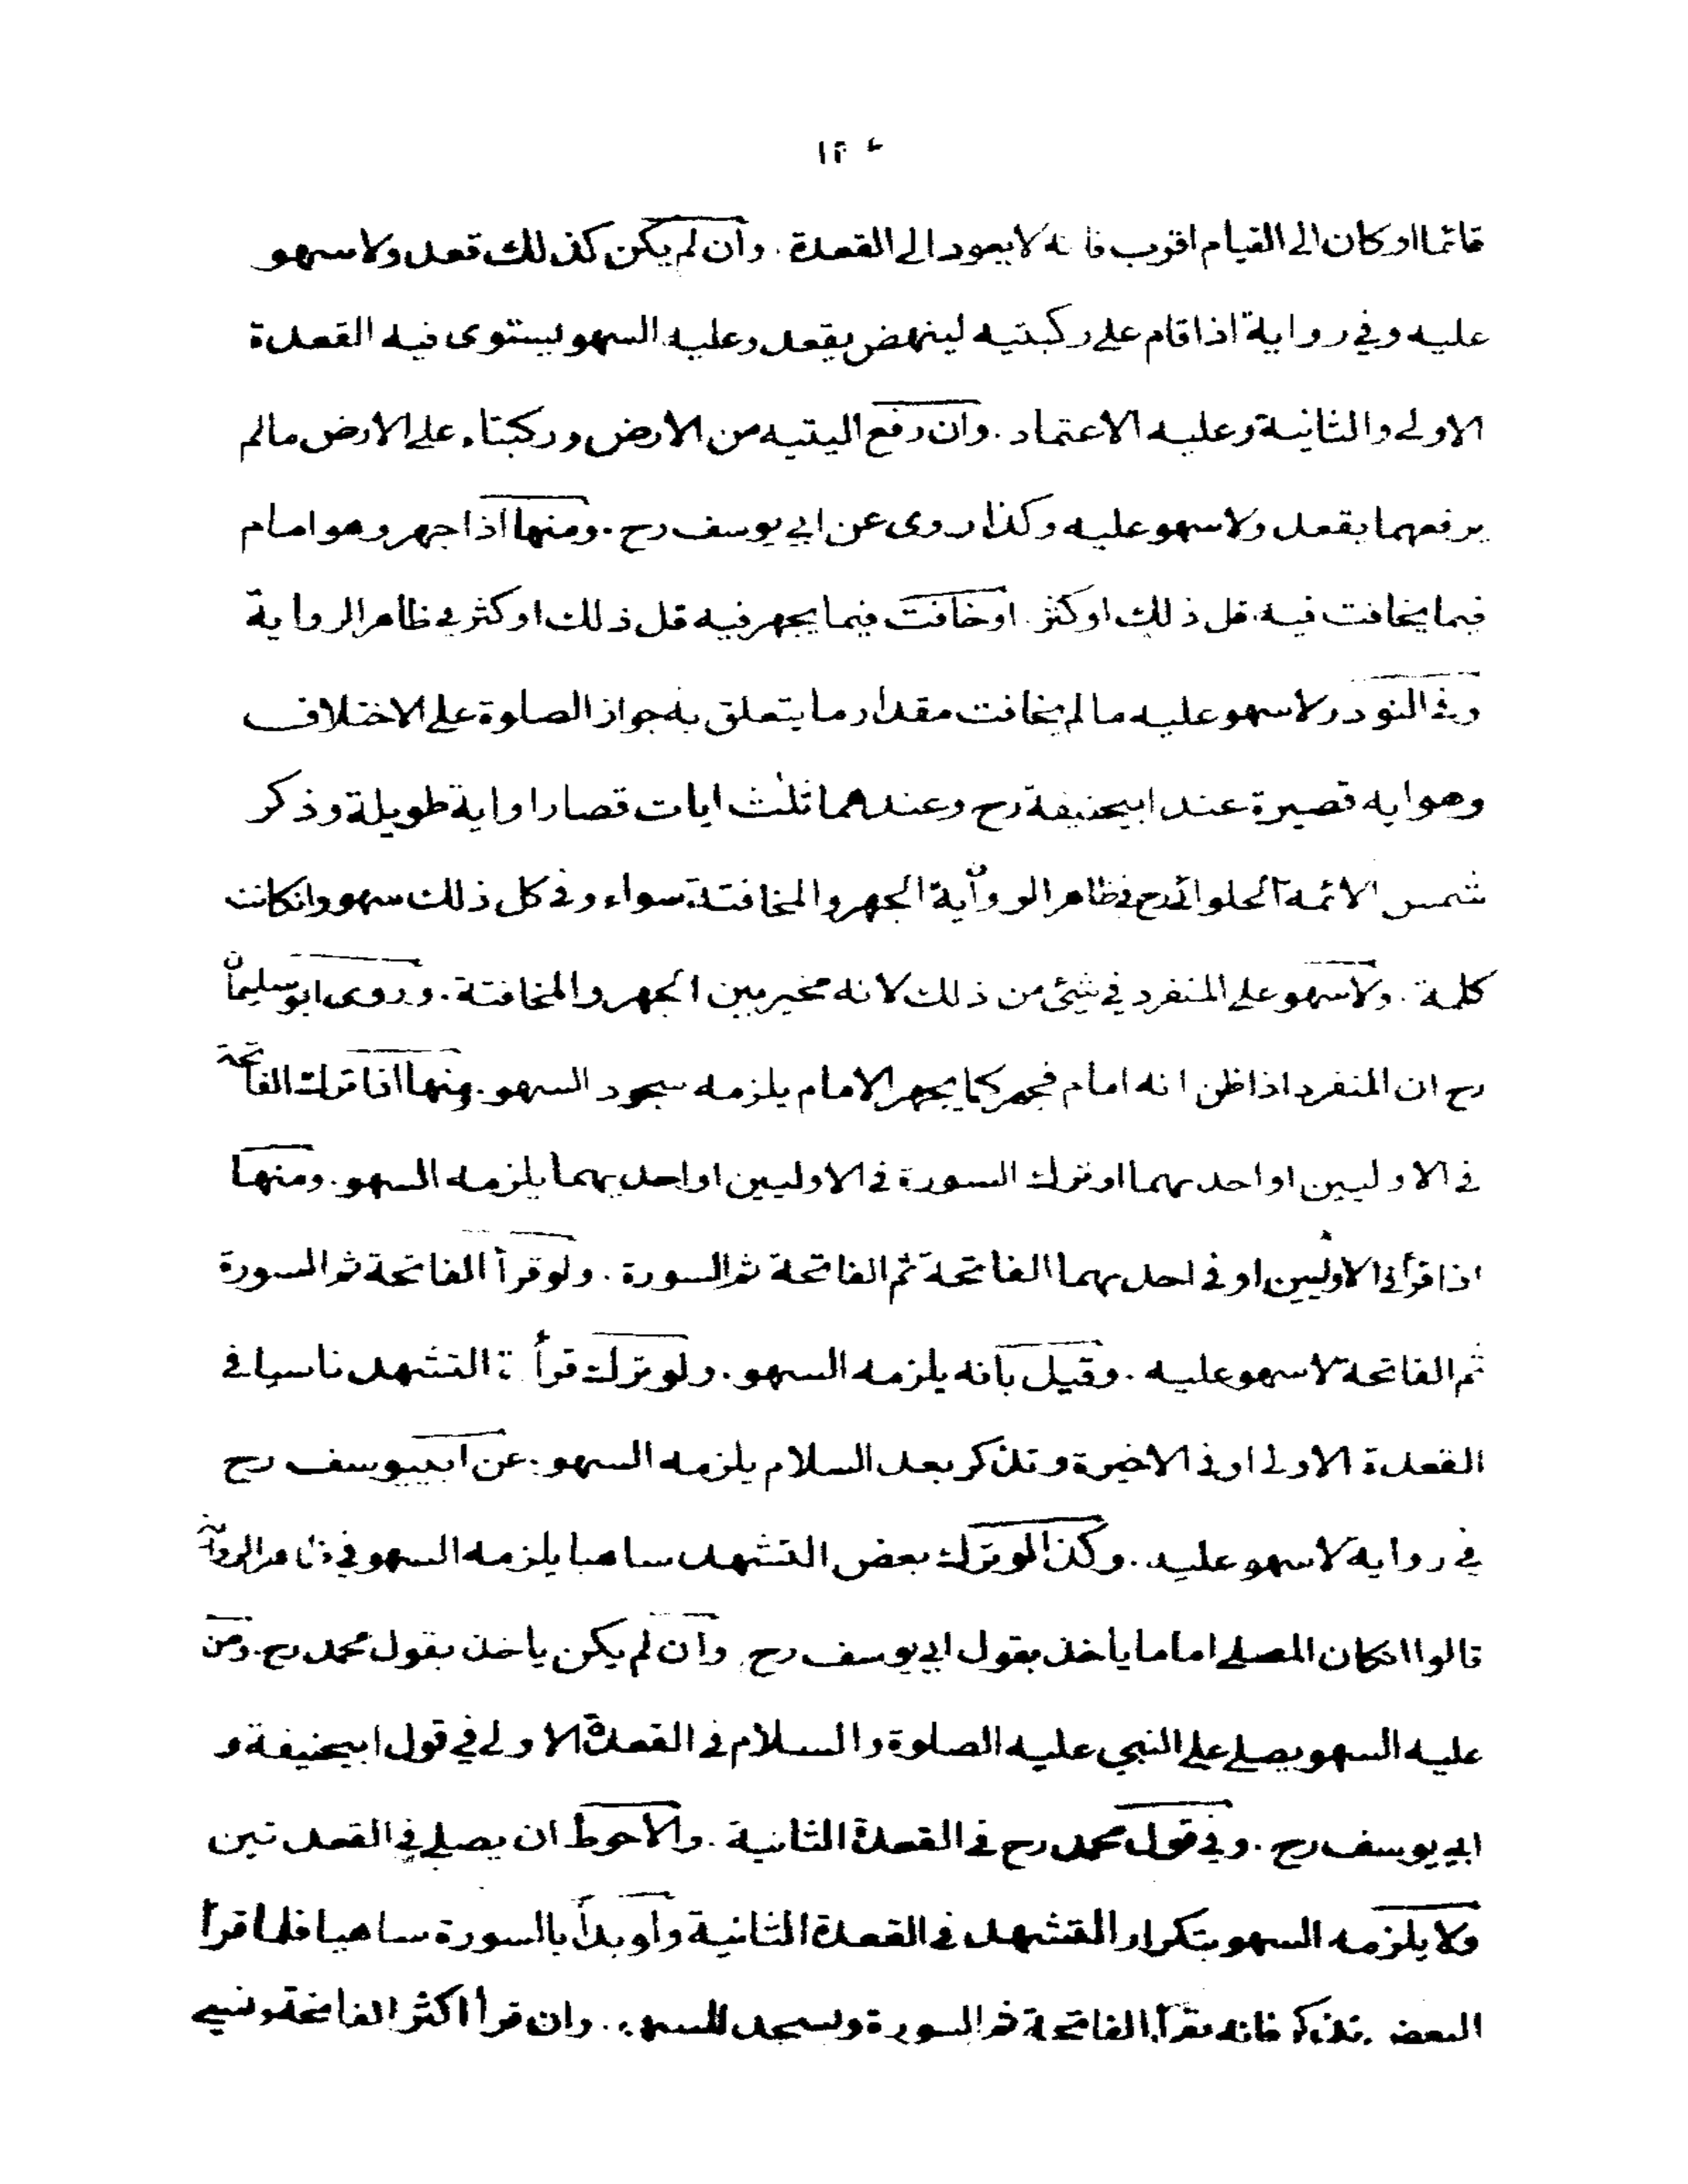 ١٢٤
قائما او كان الى القيام اقرب فا نه لا يعود الى القعدة . وان لم يكن كذلك قعد ولا سهو
عليه وفي رواية اذا قام على ركبتيه لينهض يقعد وعليه السهو يستوى فيه القعدة
الاولى والثانية وعليه الاعتماد . وان رفع اليتيه من الارض وركبتاه على الارض مالم
يرفعهما يقعد ولا سهو عليه وكذا روى عن ابي يوسف رح . ومنها اذا جهر وهو امام
فيما يخافت فيه قل ذلك او كثر . او خافت فيما يجهر فيه قل ذلك او كثر في ظاهر الرواية
وفي النودر لا سهو عليه ما لم يخافت مقدار ما يتعلق به جواز الصلوة على الاختلاف
وهو اية قصيرة عند ابيحنيفة رح وعندهما ثلث ايات قصار او اية طويلة وذكر
شمس الائمة الحلوائي رح في ظاهر الرواية الجهر والمخافتة سواء وفي كل ذلك سهو وانكانت
كلمة . ولا سهو على المنفرد في شيئ من ذلك لانه مخير بين الجهر والمخافتة . وروى ابو سليمان
رح ان المنفرد اذا ظن انه امام فجهر كما يجهر الامام يلزمه سجود السهو . ومنها اذا ترك الفاتحة
في الاوليين او احديهما او ترك السورة في الاوليين او احديهما يلزمه السهو . ومنها
اذا قرأ في الاوليين او في احديهما الفاتحة ثم الفاتحة ثم السورة . ولو قرأ الفاتحة ثم السورة
ثم الفاتحة لا سهو عليه . وقيل بانه يلزمه السهو . ولو ترك قرأ ة التشهد ناسيا في
القعدة الاولى او في الاخيرة وتذكر بعد السلام يلزمه السهو . عن ابييوسف رح
في رواية لا سهو عليه . وكذا لو ترك بعض التشهد ساهيا يلزمه السهو في ظاهر الرواية
قالوا انكان المصلي اماما ياخذ بقول ابي يوسف رح وان لم يكن ياخذ بقول محمد رح . ومن
عليه السهو يصلي على النبي عليه الصلوة والسلام في القعدة الاولى في قول ابيحنيفة و
ابي يوسف رح . وفي قول محمد رح في القعدة الثانية . والاحوط ان يصلي في القعدتين
ولا يلزمه السهو بتكرار القشهد في القعدة الثانية واو بدأ بالسورة ساهيا فلما قرأ
البعض تذكر فانه يقرأ الفاتحة ثم السورة ويسجد للسهو . وان قرأ اكثر الفاتحة ونسي